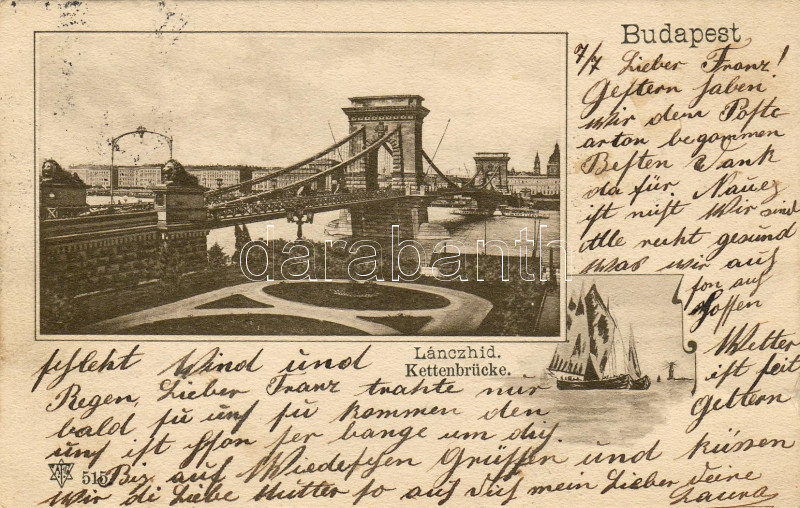 Budapest
7/7 Lieber Franz!
Gestern haben
wir dem Poste
arton begommen
Besten Dank
dafür, Naues
ist nist Wir sind
Alle recht gesund
was wir auf
fon auf
Hoffen
Wetter
ist seit
Gestern
schleht Wind und
Regen, Lieber Franz trahte nur
bald zu uns zu kommen den
uns ist schon ser bange um dich.
Bis auf Wiedersehen Grüssen und küssen
wir di Liebe Mutter so auf Dich mein Lieber deine
Laura
Lánczhid.
Kettenbrücke.
515.
darabanth